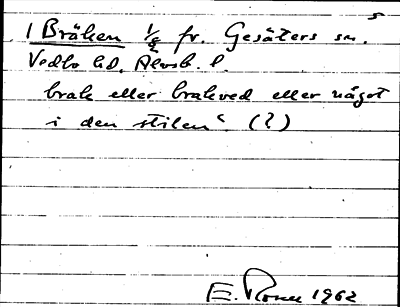 1 Bräken 1/2 fr. Gesäters sn.
Vedbo hd. Älvsb. l.
brak eller brakved eller något
i den stilen" (?)
E. 1962